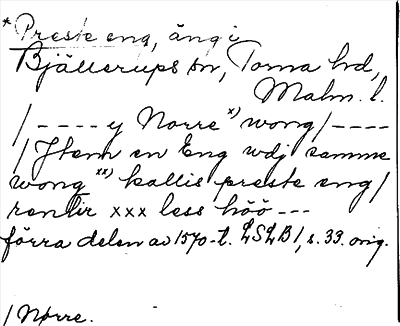 * Preste eng, äng i
Bjällerups sn, Torna hd,
Malm. l.
/ - - - - y Norre x) wong / - - - -
/ Jtem en Eng wdj samme
wong xx) kallis preste eng /
renlir xxx less höö - - -
förra delen av 1570-t. LSLB 1, s. 33. orig.
/ Norre.